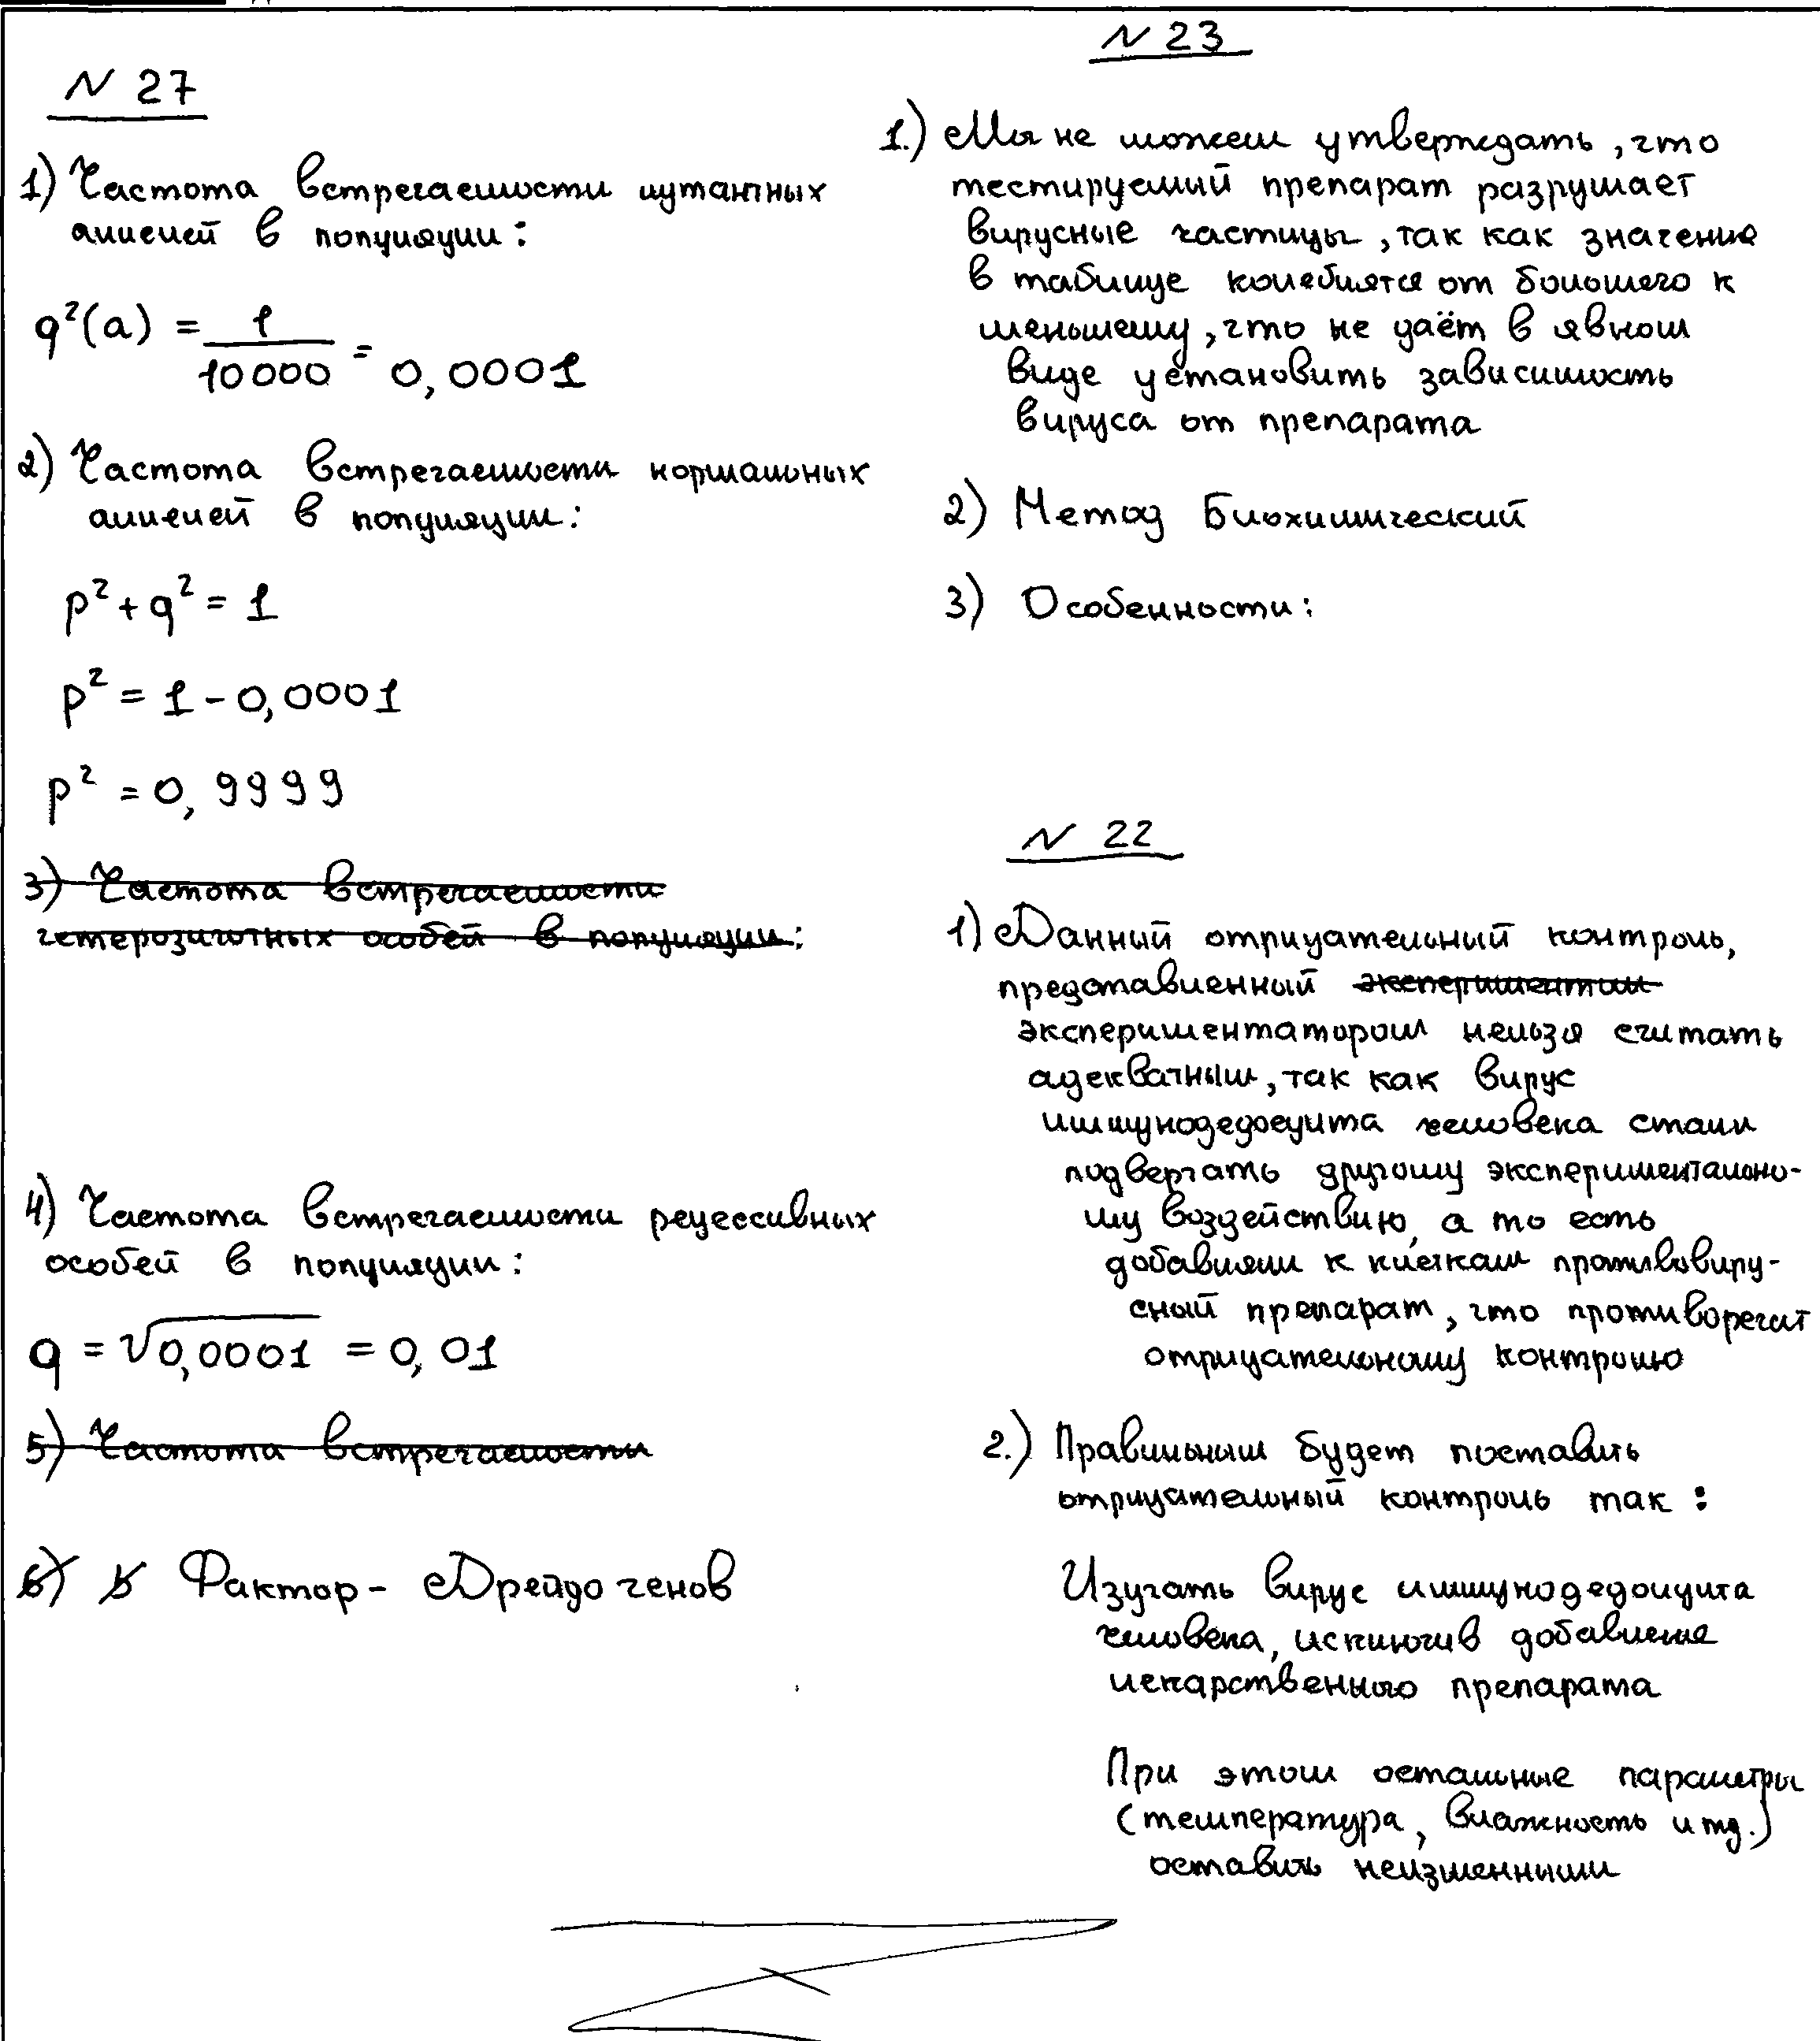 N 27
1) Частота встречаемости мутантных
аллелей в популяции:
q²(a) = 1/10000 = 0,0001
2) Частота встречаемости нормальных
аллелей в популяции:
p² + q² = 1
p² = 1 - 0,0001
p² = 0,9999
3) Частота встречаемости
гетерозиготных особей в популяции:
4) Частота встречаемости рецессивных
особей в популяции:
q = √0,0001 = 0,01
5) Частота встречаемости
6) 5 Фактор - Дрейфо генов
N 23
1.) Мы не можем утверждать, что
тестируемый препарат разрушает
вирусные частицы, так как значение
в таблице колеблятся от большего к
меньшему, что не даёт в явном
виде установить зависимость
вируса от препарата
2) Метод Биохимический
3) Особенности:
N 22
1) Данный отрицательный контроль,
представленный эксперименттом
экспериментатором нельзя считать
адекватным, так как вирус
человека стали
подвергать другому экспериментально-
му воздействию, а то есть
добавляли к клеткам противовиру-
сный препарат, что противоречит
отрицательному контролю
2.) Правильным будет поставить
отрицательный контроль так:
Изучать вирус
человека, исключив добавление
лекарственного препарата
При этом остальные параметры
(температура, влажность и тд.)
оставить неизменными